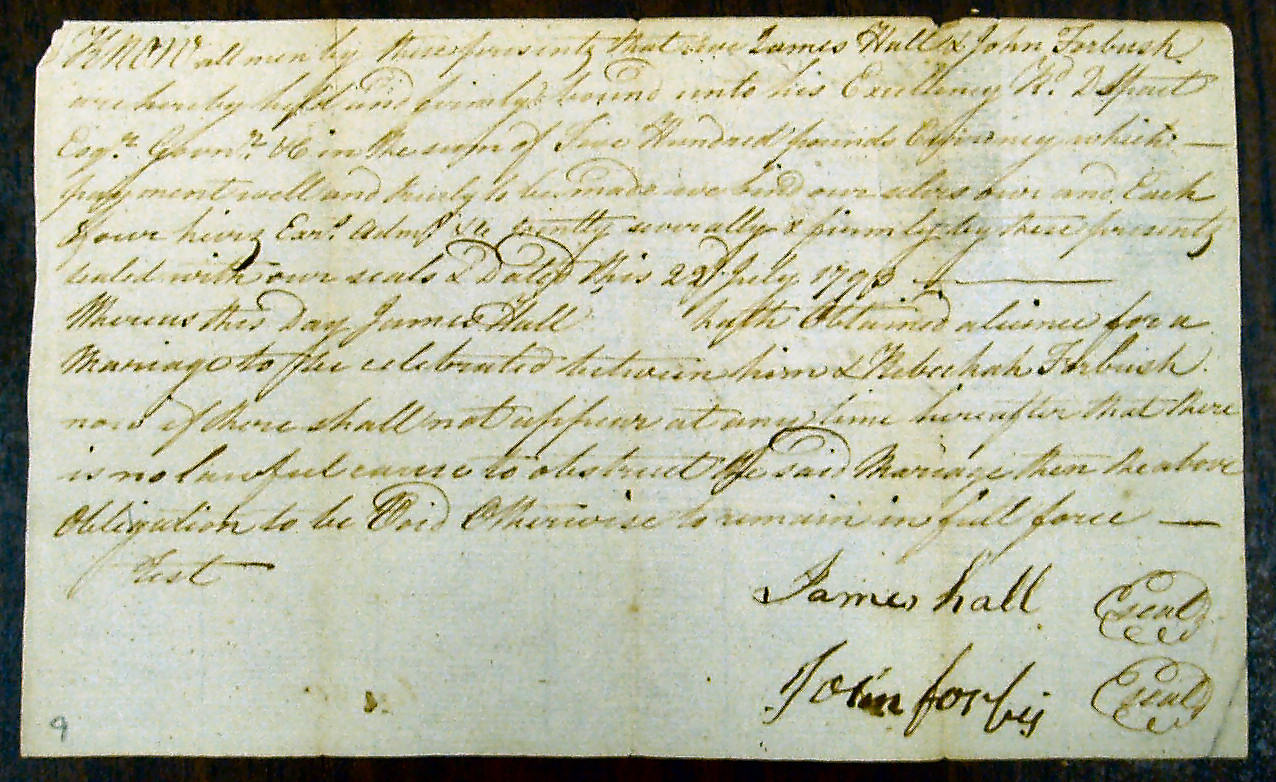 Know all men by these presents that we James Hall & John Forbush
are hereby held and firmly bound unto his Excellency Rd. D Spait
Esqr. Govnr. &c in the sum of Five Hundred pounds Currency which —
payment well and truly to be made we bind our selves our and Each
of our heirs Exrs. Admrs. &c joently severally & firmly by these presents
sealed with our seals & Dated this 22d July 179
Whereas this Day James Hall hath Obtained a licence for a
Marriage to be celebrated between him & Rebeckah Forbush.
now if there shall not appear at any time hereafter that there
is no lawful cause to obstruct the said Marriage then the above
Obligation to be Void Otherwise to remain in full force —
Test
James hall (seal)
John forbis (seal)
9